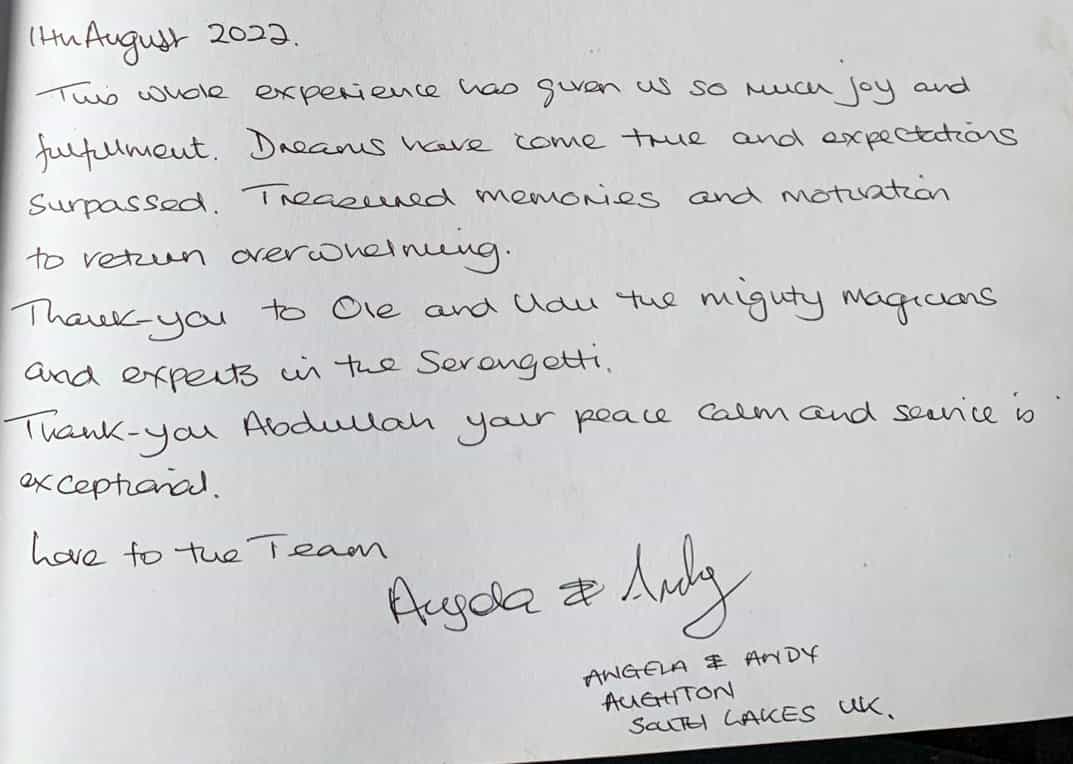 August 2022.
This whole experience has given us so much joy and
fulfillment. Dreams have come true and expectations
surpassed. Treasured memories and motivation
to return overwhelming.
Thank-you to Ole and the mighty magicians
and experts in the Serengetti.
Thank-you Abdullah your peace calm and service is
exceptional.
Love to the Team
Angela & Andy
ANGELA & ANDY
AUGHTON
SOUTH LAKES UK.